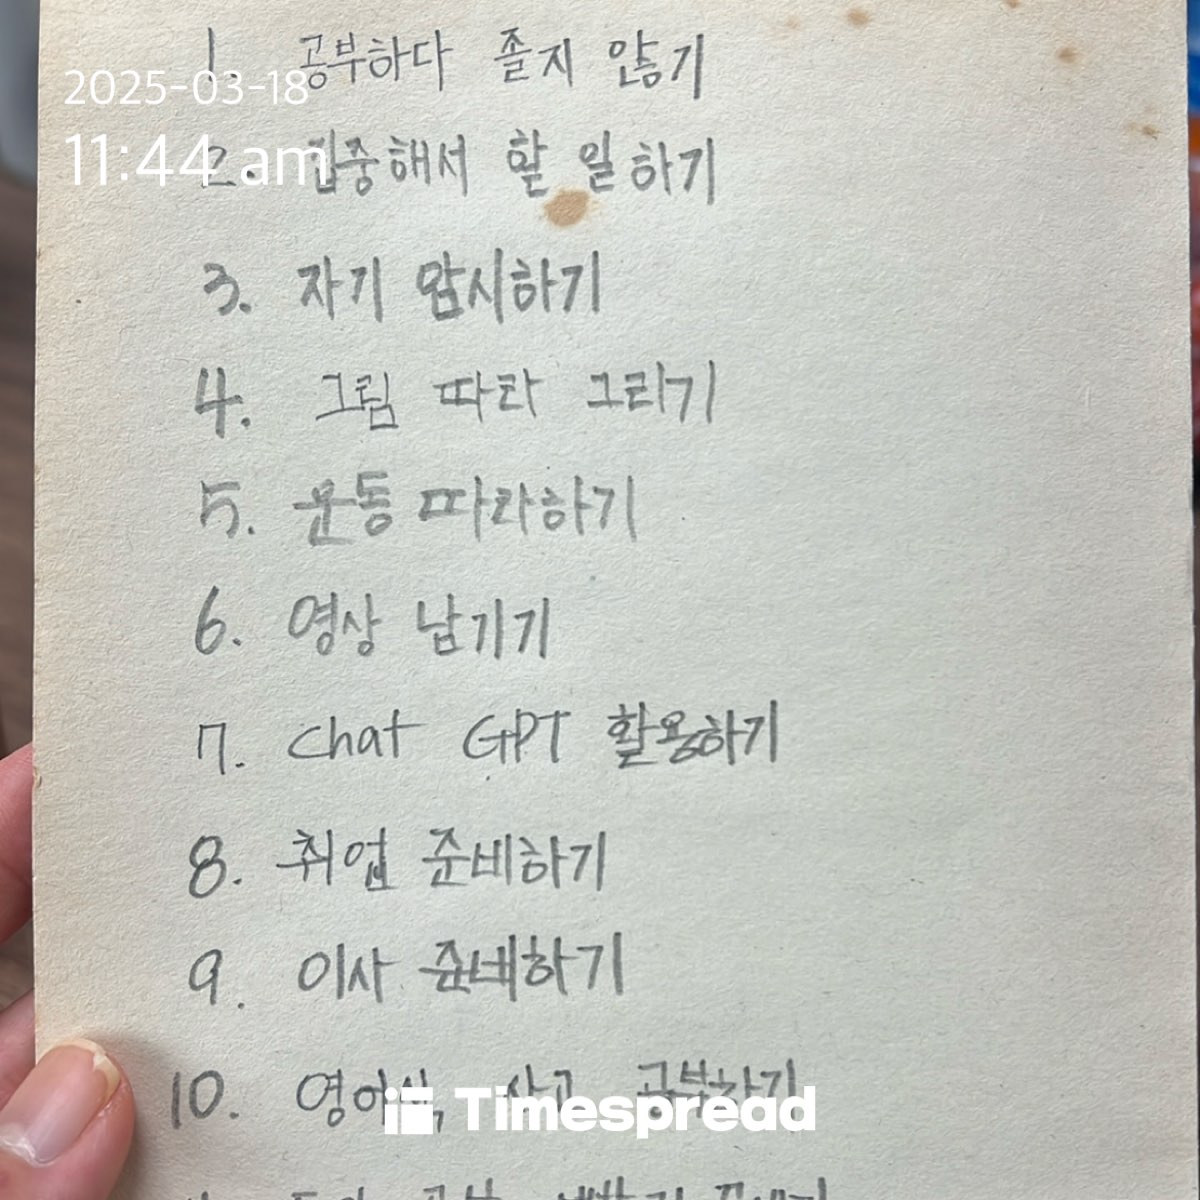 1. 공부하다 졸지 않기
2025-03-18
11:44 am
2. 집중해서 할 일하기
3. 자기 암시하기
4. 그림 따라 그리기
5. 운동 따라하기
6. 영상 남기기
7. Chat GPT 활용하기
8. 취업 준비하기
9. 이사 준비하기
10. 영어식 사고 공부하기
Timespread